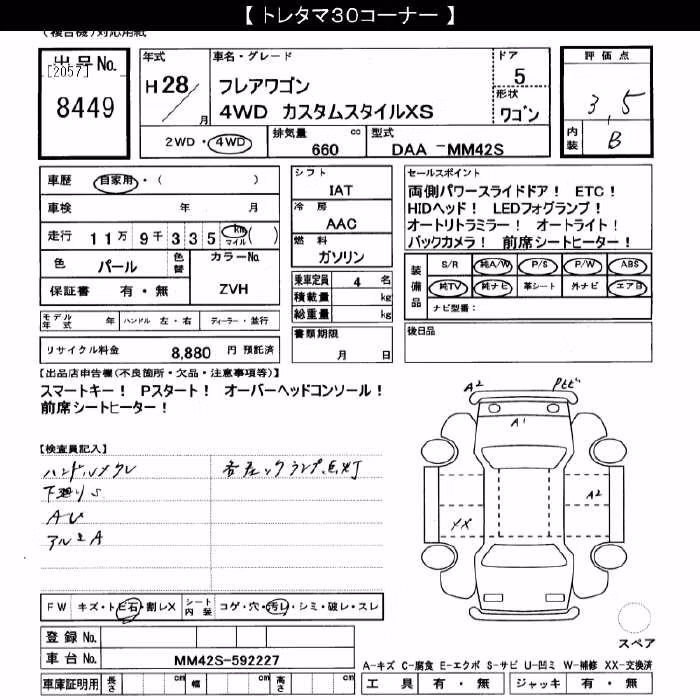 【 トレタマ30コーナー 】
(複合機)対応用紙
出品No.
[2057]
8449
年式
H 28 / 月
車名・グレード
フレアワゴン
4WD カスタムスタイルXS
ドア
5
形状
ワゴン
2WD・4WD
排気量 660 cc
型式 DAA-MM42S
評価点
3.5
内装 B
車歴 自家用・( )
車検 年 月
走行 11万9千335 km マイル ( )
色 パール 色替
カラーNo. ZVH
保証書 有・無
シフト
IAT
冷房
AAC
燃料
ガソリン
乗車定員 4 名
積載量 kg
総重量 kg
セールスポイント
両側パワースライドドア! ETC!
HIDヘッド! LEDフォグランプ!
オートリトラミラー! オートライト!
バックカメラ! 前席シートヒーター!
装備品 S/R 純A/W P/S P/W ABS
純TV 純ナビ 革シート 外ナビ エア日
ナビ型番:
モデル年式 年 ハンドル 左・右 ディーラー・並行
書類期限
月 日
後日品
リサイクル料金 8,880 円 預託済
【出品店申告欄(不良箇所・欠品・注意事項等)】
スマートキー! Pスタート! オーバーヘッドコンソール!
前席シートヒーター!
【検査員記入】
ハンドルメクレ
下廻りS
AU
アルミA
各チェックランプ点灯
A2
Pトビ
A1
A2
XX
FW キズ・トビ石・割レX シート内装 コゲ・穴・汚レ・シミ・破レ・スレ
登録No.
車台No. MM42S-592227
車庫証明用 長さ cm 幅 cm 高さ cm
スペア
A-キズ C-腐食 E-エクボ S-サビ U-凹ミ W-補修 XX-交換済
工具 有・無 ジャッキ 有・無